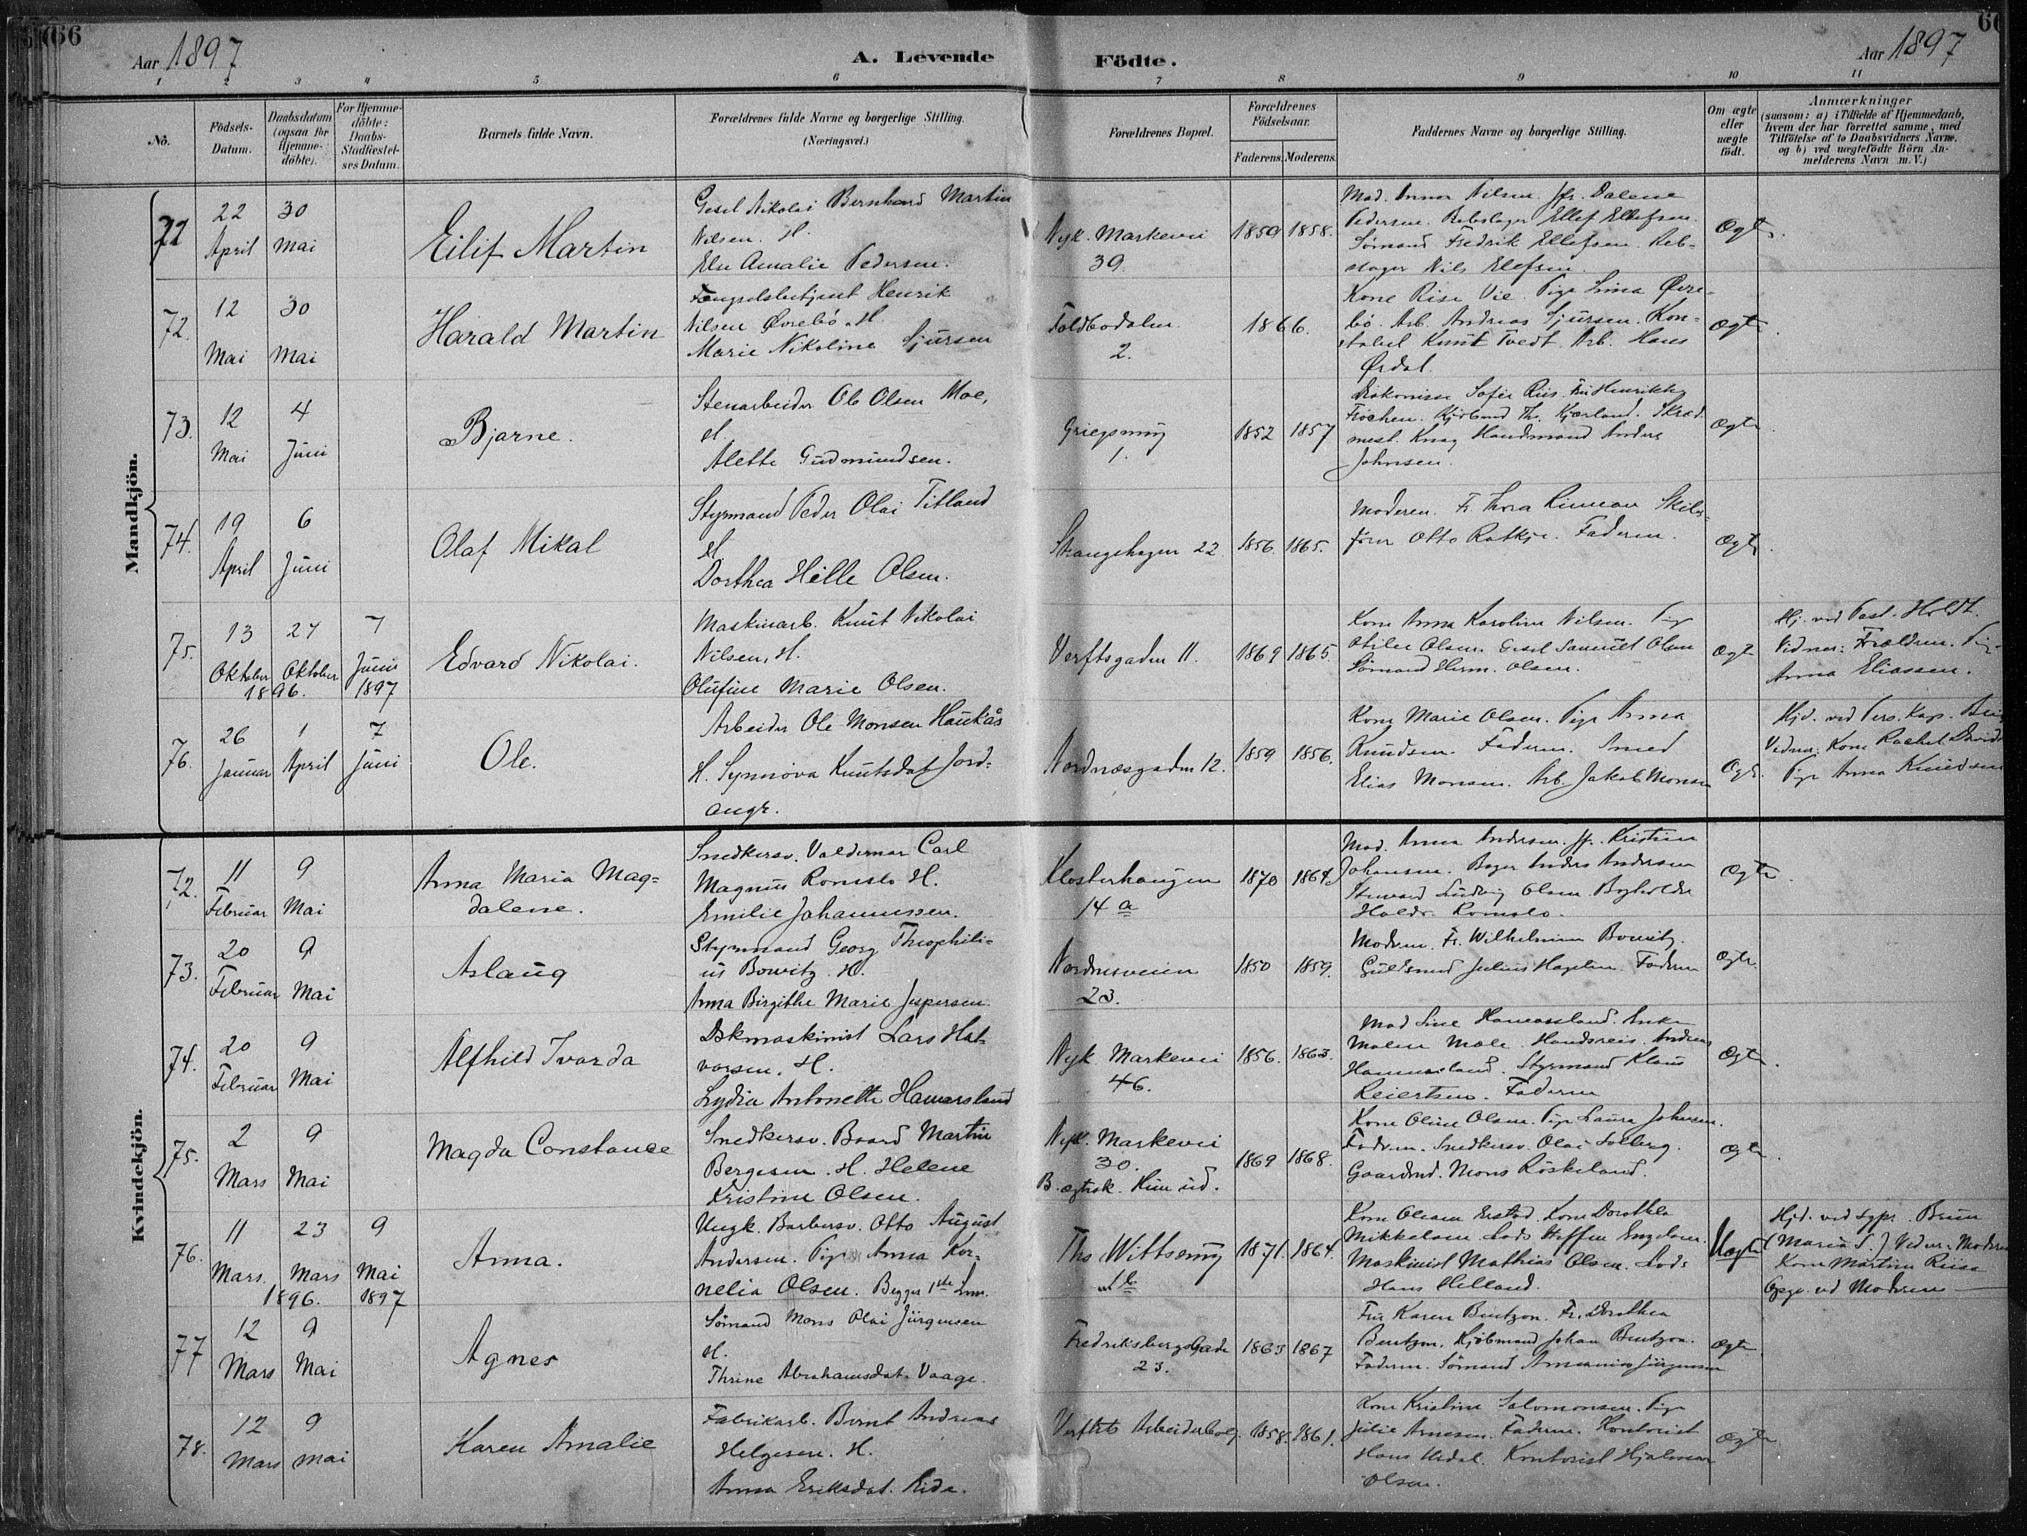 66
66
Aar 1897
A. Levende
Födte.
Aar 1897
1 2 3 4 5 6 7 8 9 10 11
No.
Födsels-
Datum.
Daabsdatum
(ogsaa for
Hjemme-
döbte).
For Hjemme-
döbte:
Daabs-
Stadfæstel-
ses Datum.
Barnets fulde Navn.
Forældrenes fulde Navne og borgerlige Stilling.
(Næringsvei.)
Forældrenes Bopæl.
Forældrenes
Födselsaar.
Faderens.
Moderens.
Faddernes Navne og borgerlige Stilling.
Om ægte
eller
uægte
født.
Anmærkninger
(saasom: a) i Tilfælde af Hjemmedaab,
hvem der har forrettet samme, med
Tilföielse af to Daabsvidners Navne.
og b) ved uægtefödte Börn An-
melderens Navn m. V.)
Mandkjön.
72
22
April
30
Mai
Eilif Martin
Gesel Nikolai Bernhard Martin
Nilsen. H.
Amalie Pedersen.
Nyk. Markevei
39.
1859 1858.
Mad. Anna Nilsen. Jfr. Dalene
Pedersen. Rebslager Ellef Ellefsen.
Sømand Fredrik Ellefsen. Reb-
slager Nils Elefsen.
Ægte.
72.
12
Mai
30
Mai
Harald Martin
Fængselsbetjent Henrik
Nilsen Øvrebö. H.
Marie Nikoline Sjursen
Foldbodalen
2.
1866.
Kone Vie. Pige Øvre-
bö. Arb. Andreas Sjursen. Kon-
stabel Knut Tvedt. Arb. Hans
Ørdal.
Ægte.
73.
12
Mai
4
Juni
Bjarne.
Stenarbeider Ole Olsen Moe,
H.
Alette Gudmundsen.
Griegsmug
1.
1852 1857
Diakonisse Sofie Riis. Fru Henrikke
Kjøbmd Th. Kjærland. Skræd.
mest. Knag Handmand Anders
Johnsen.
Ægte
74.
19
April
6
Juni
Olaf Mikal
Styrmand Peder Olai Titland
H.
Dorthea Hille Olsen.
Strangehagen 22
1856. 1865.
Moderen. Fr. Thora Skibs-
fører Otto Faderen.
Ægte.
75.
13
Oktober
27
Oktober
1896.
7
Juni
1897
Edvard Nikolai.
Maskinarb. Knut Nikolai
Nilsen, H.
Olufine Marie Olsen.
Verftsgaden 11.
1869 1865.
Kone Anna Karoline Nilsen. Pige
Otilie Olsen. Gesel Samuel Olsen
Sømand Herm. Olsen.
Ægte
Hj. ved Past. Holdt.
Vidner: Forældrene. Pige
Anna Eliassen.
76.
26
Januar
1
April
7
Juni
Ole.
Arbeider Ole Monsen Haukås
H. Synnöva Knutsdat Jord-
anger.
Nordnæsgaden 12.
1859 1856.
Kone Marie Olsen. Pige Anna
Knudsen. Faderen. Smed
Elias Monsen. Arb. Jakob Monsen
Ægte.
Hjd. ved Pers. Kap.
Vidner: Kone Rachel
Pige Anna Knudsen
Kvindekjön.
72.
11
Februar
9
Mai
Anna Maria Mag=
dalene.
Snedkersv. Valdemar Carl
Magnus Romslo H.
Emilie Johannessen.
Klosterhaugen
14 a
1870 1864.
Mad. Anna Andersen. Jfr. Kristine
Johansen. Bager Anders Andersen
Steward Ludvig Olsen
Romslo.
Ægte.
73.
20
Februar
9
Mai
Aslaug
Styrmand Georg Theophili-
us Bowitz. H.
Anna Birgithe Marie Jespersen
Nordnesveien
23.
1850 1859.
Moderen. Fr. Wilhelmine Bowitz.
Guldsmed Julius Faderen
Ægte.
74.
20
Februar
9
Mai
Alfhild Ivarda
Dskmaskinist Lars Hal-
vorsen. H.
Lydia Antonette Hamarsland
Nyk. Markevei
46.
1856. 1863.
Mad Sine Hamarsland.
Handsreis. Andreas
Hammarsland. Styrmand Klaus
Reiertsen. Faderen
Ægte.
75.
2
Mars
9
Mai
Magda Constance
Snedkersv. Baard Martin
Bergesen. H. Helene
Kristine Olsen.
Nyk. Markevei
30.
1869 1868.
Kone Oline Olsen. Pige Laura Johnsen.
Faderen. Snedkersv. Olai Solberg.
Gaardmd. Mons Röskeland.
Ægte.
76.
11
Mars.
23
Mars
1896.
9
Mai
1897
Anna.
Ungk. Barbersv. Otto August
Andersen. Pige Anna Kor-
nelia Olsen. Begges 1ste Lm.
Ths Wittsmug
1 b
1871. 1864.
Kone Olean Erstad. Kone Dorothea
Mikkelsen. Lods Steffen
Maskinist Mathias Olsen. Lods
Hans Helland.
Uægte
Hjd. ved Brun
(Maria S.) Vidner: Moderen
Kone Martine
Opgv. ved Moderen
77
12
Mars
9
Mai
Agnes
Sömand Mons Olai Jürgensen
H.
Thrine Abrahamsdat. Vaage.
Fredriksbergsgade
23.
1863 1867
Fru Karen Bentzon. Fr. Dorothea
Bentzon. Kjöbmand Johan Bentzon.
Faderen. Sömand Jürgensen
Ægte.
78.
12
Mars
9
Mai
Karen Amalie
Fabrikarb. Bernt Andreas
Helgesen. H.
Anna Eriksdat. Eide.
Verftets Arbeiderbolig.
1858. 1861.
Kone Kristine Salomonsen. Pige
Julie Arnesen. Faderen. Kontorist
Hans Kontorist Hjalmar
Olsen.
Ægte